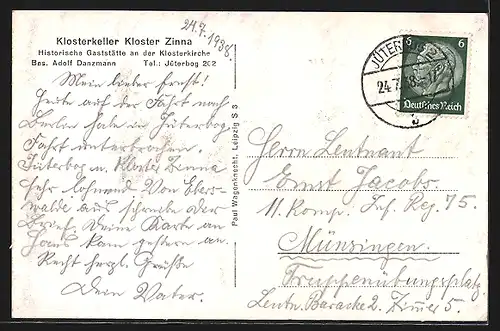 24.7.1938.
Klosterkeller Kloster Zinna
Historische Gaststätte an der Klosterkirche
Bes. Adolf Danzmann Tel.: Jüterbog 202
Mein lieber Ernst!
Heute auf der Fahrt nach
Berlin habe in Jüterbog
Fahrt unterbrochen.
Jüterbog u. Kloster Zinna
sehr lohnend. Von Ebers-
walde aus schreibe Dir
Brief. Deine Karte an
Hans kam gestern an.
Recht herzl. Grüße
Dein Vater.
Paul Wagenknecht, Leipzig S 3
JÜTERBOG
24.7.38
6 6
Deutsches Reich
Herrn Leutnant
Ernst Jacobs
11. Komp. Inf. Reg. 75.
Münsingen.
Truppenübungsplatz
Leutn. Baracke 2. Zimmer 5.